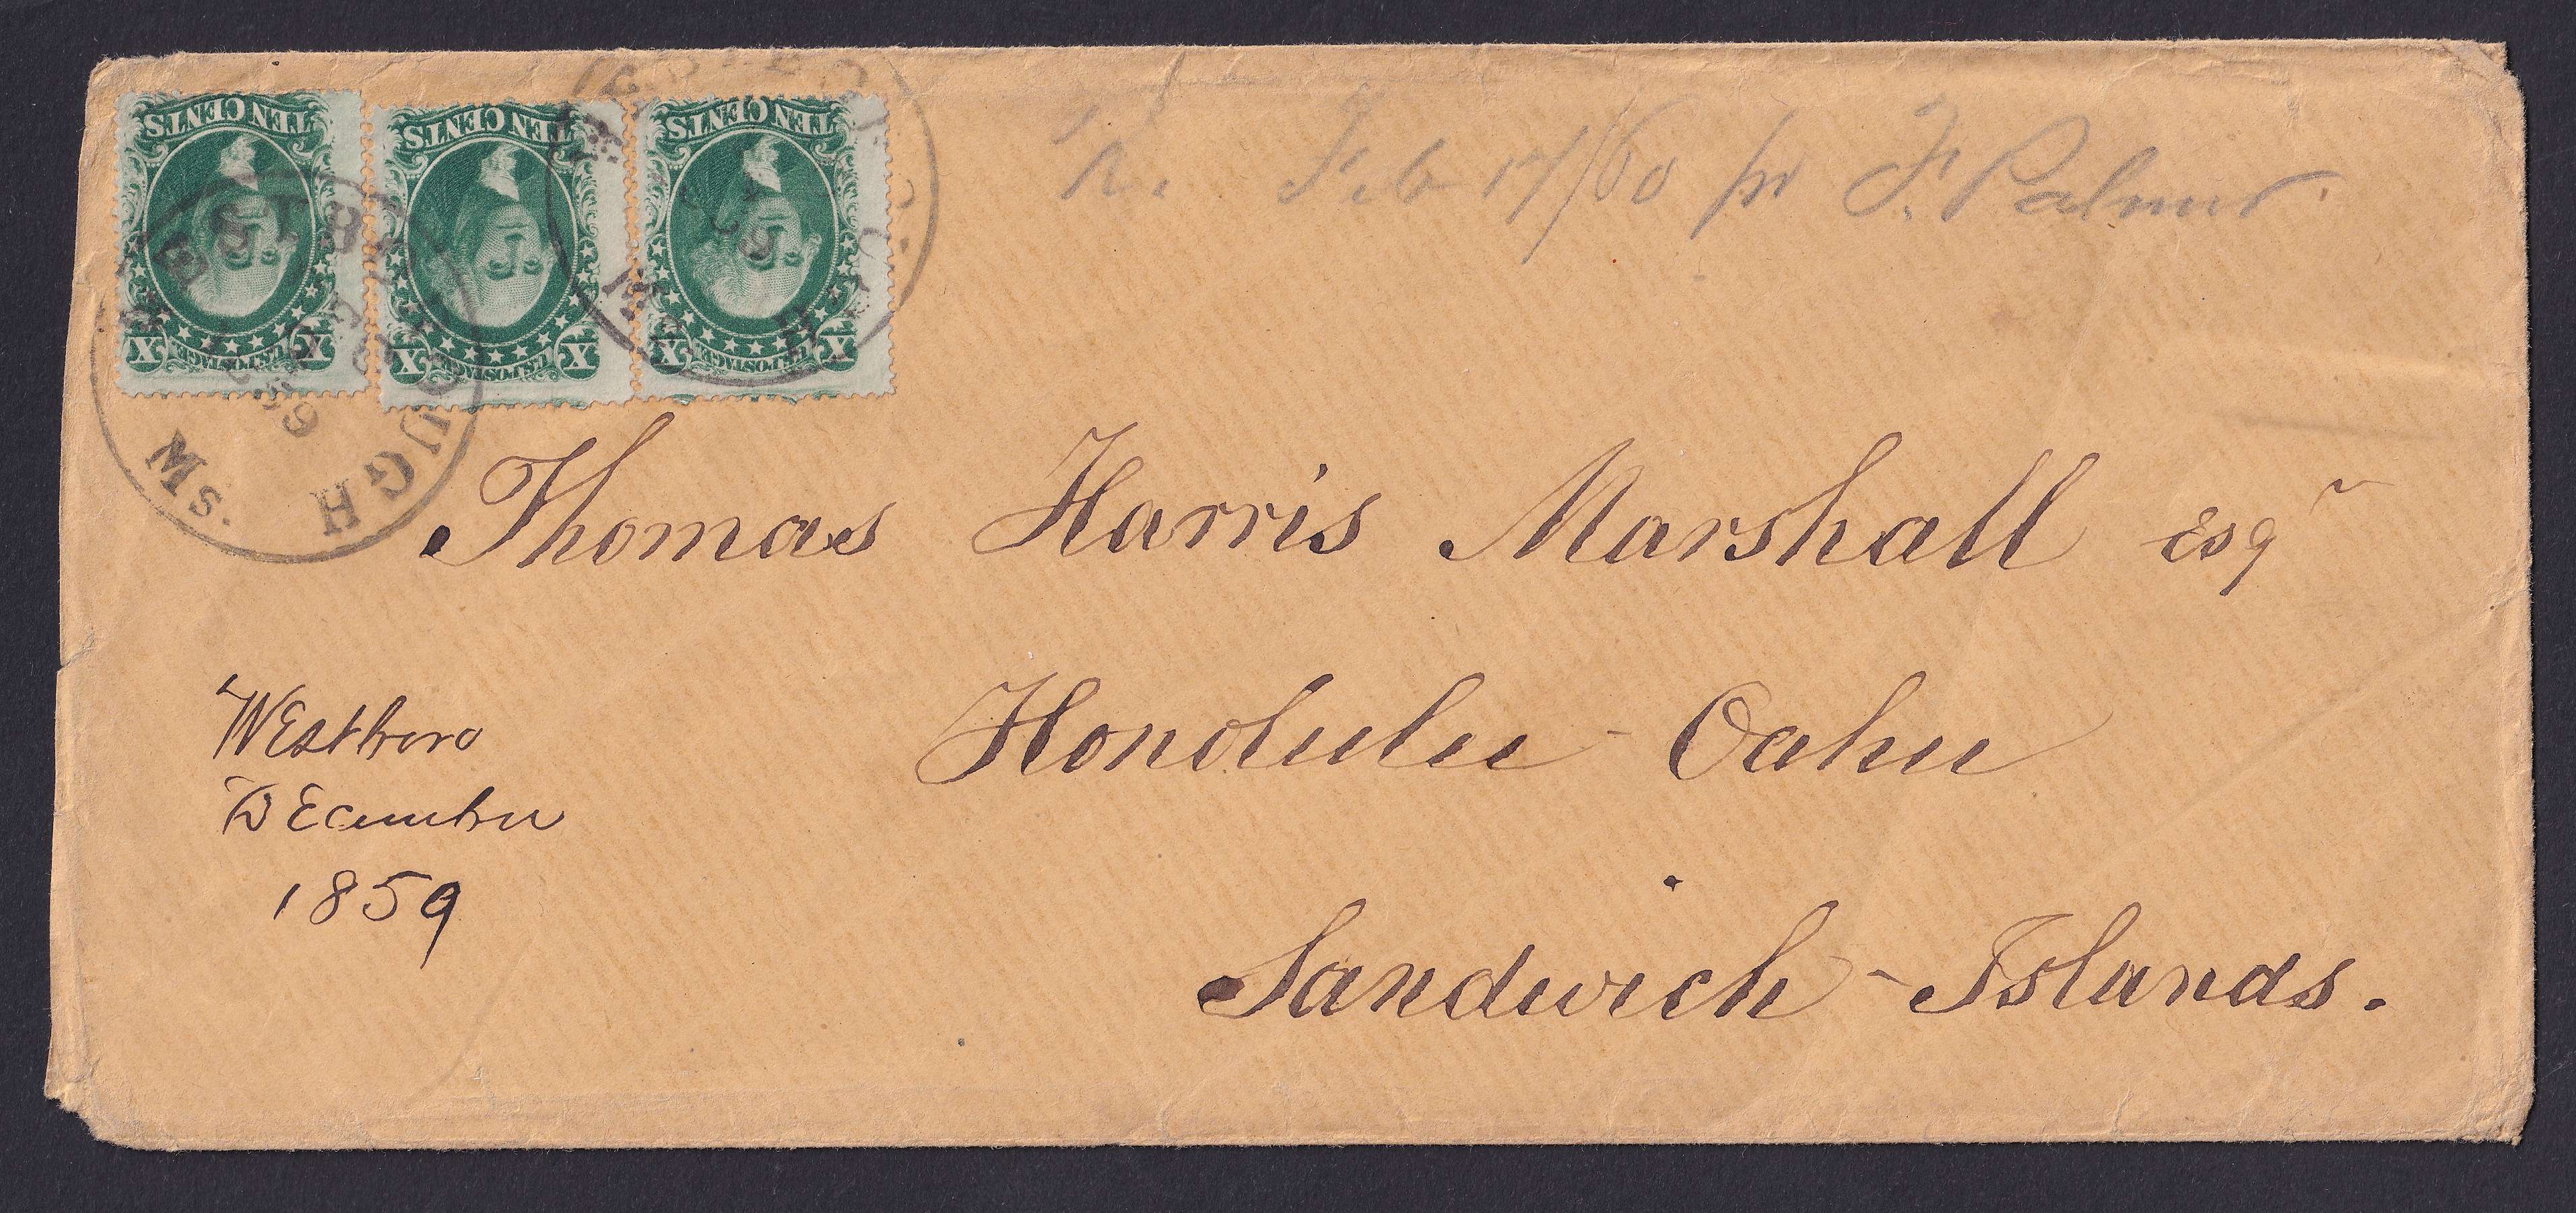 TEN CENTS
X U.S. POSTAGE X
TEN CENTS
X U.S. POSTAGE X
TEN CENTS
X U.S. POSTAGE X
WESTBOROUGH
Ms.
Feb 17/60 pr F. Palmer.
Thomas Harris Marshall Esqr
Honolulu - Oahu
Sandwich - Islands.
Westboro
December
1859